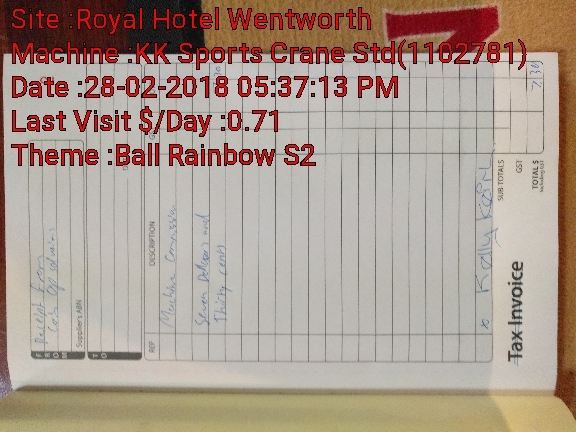 Site :Royal Hotel Wentworth
Machine :KK Sports Crane Std(1102781)
Date :28-02-2018 05:37:13 PM
Last Visit $/Day :0.71
Theme :Ball Rainbow S2
Tax Invoice
FROM
Receipt from
Supplier's ABN
TO
REF
DESCRIPTION
Machine Commission
Seven Dollars and
Thirty cents
SUB TOTALS
GST
TOTAL $
Including GST
7.30